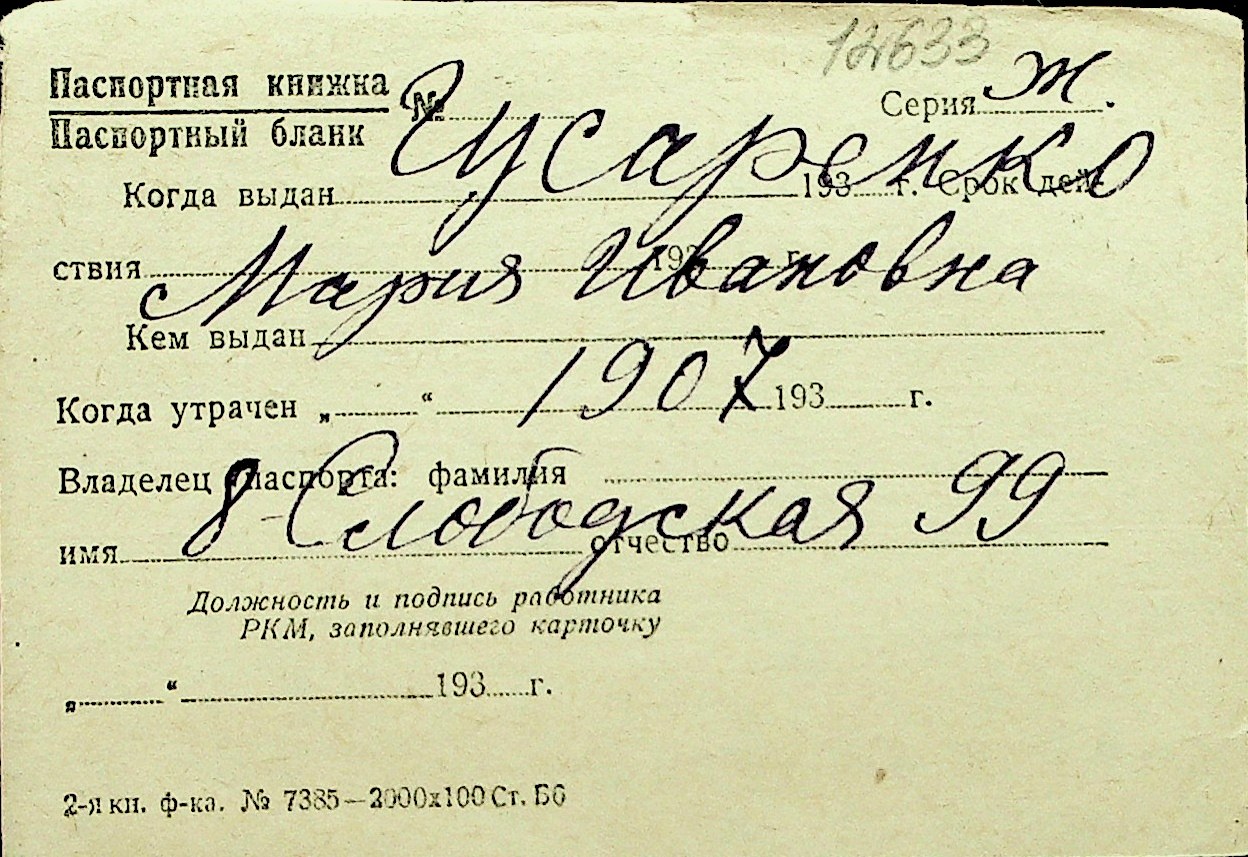 12633
Паспортная книжка
Паспортный бланк № Серия ж.
Гусаренко
Когда выдан 193 г. Срок дей-
ствия 193 г.
Мария Ивановна
Кем выдан
1907
Когда утрачен „ “ 193 г.
Владелец паспорта: фамилия
8 Слободская 99
имя отчество
Должность и подпись работника
РКМ, заполнявшего карточку
„ “ 193 г.
2-я кн. ф-ка. № 7385—2000х100 Ст. Бб